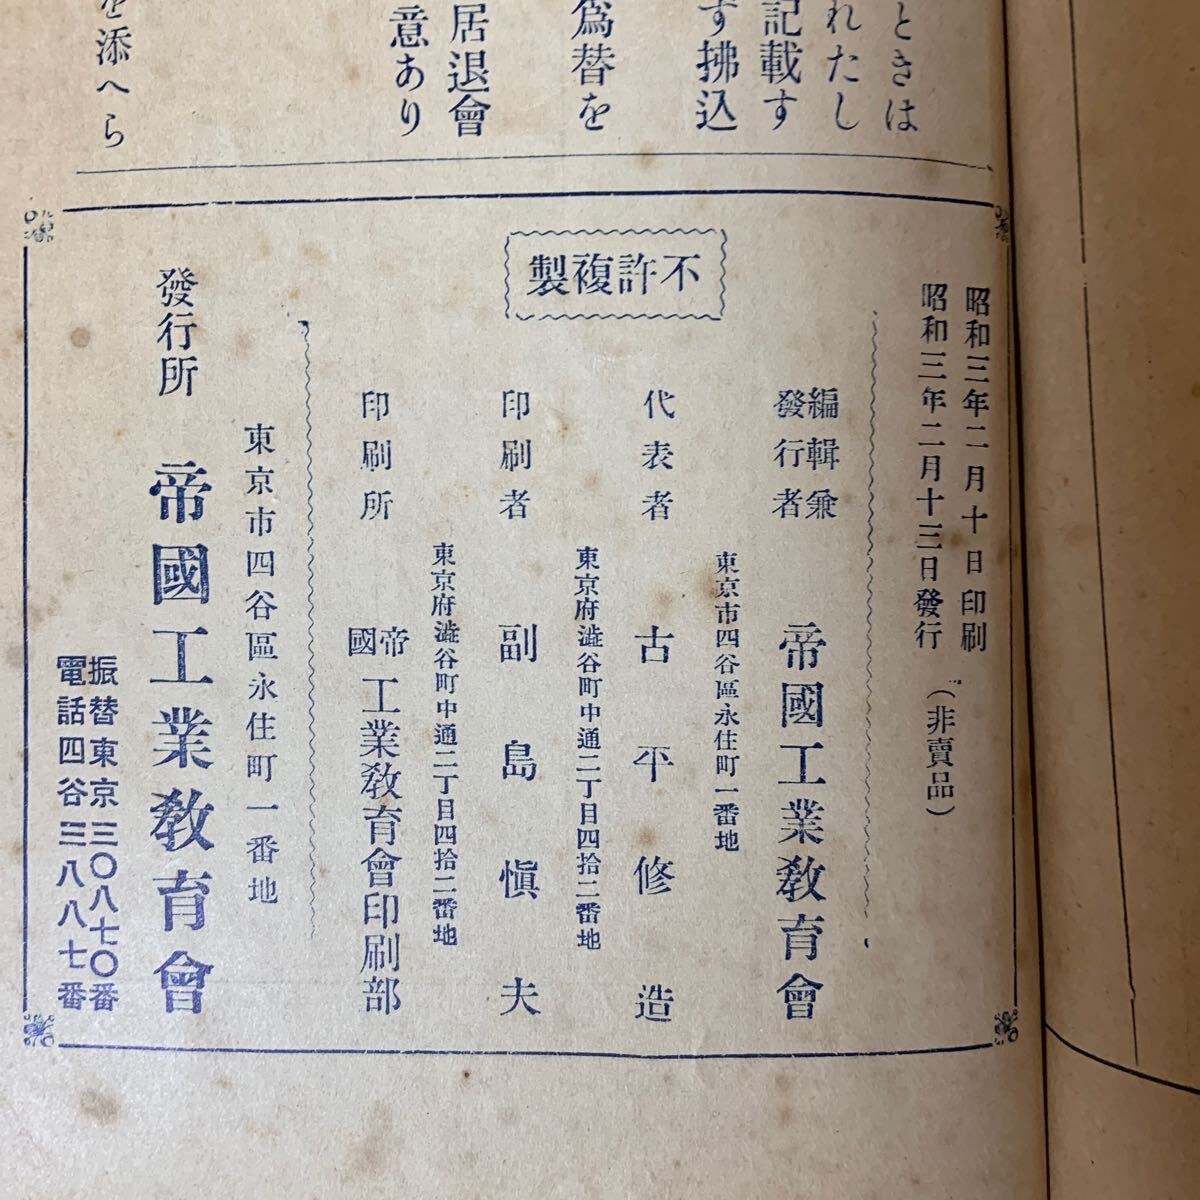 ときは
れたし
記載す
す拂込
爲替を
居退會
意あり
を添へら
昭和三年二月十日印刷
昭和三年二月十三日發行 (非賣品)
不許複製
編輯兼
發行者
帝國工業敎育會
東京市四谷區永住町一番地
代表者 古平修造
東京府澁谷町中通二丁目四拾二番地
印刷者 副島愼夫
東京府澁谷町中通二丁目四拾二番地
印刷所 帝國工業敎育會印刷部
東京市四谷區永住町一番地
發行所 帝國工業敎育會
振替東京三〇八七〇番
電話四谷三八八七番